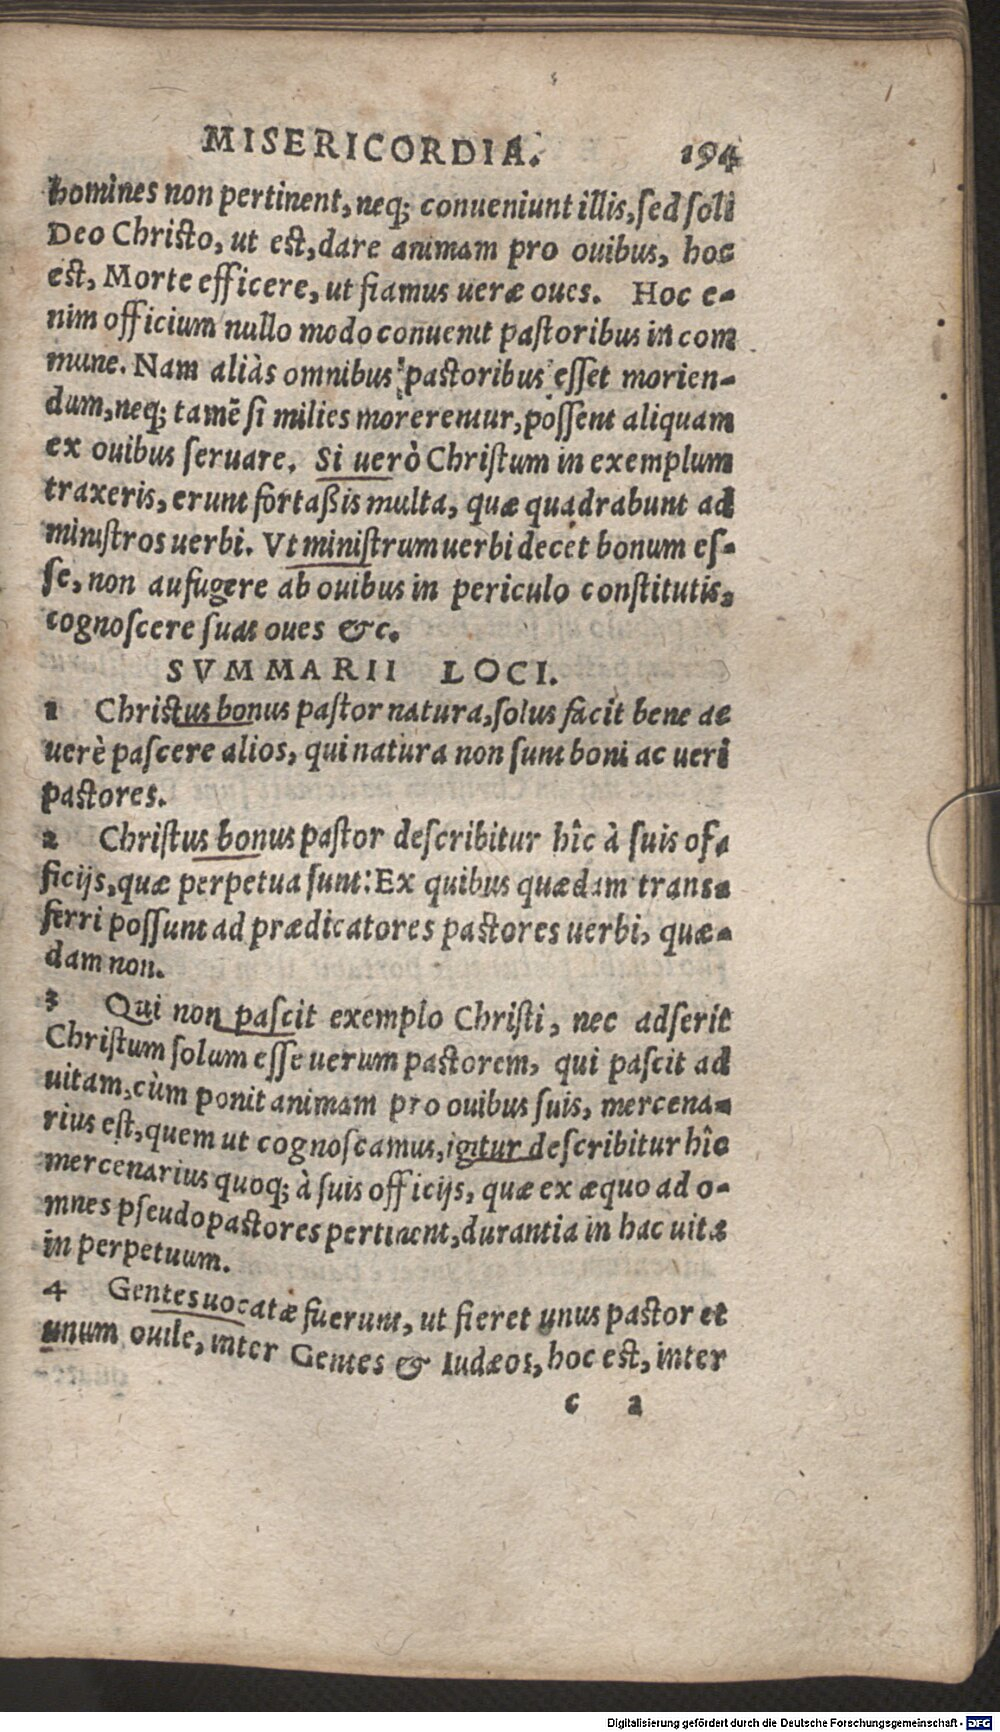 MISERICORDIA. 194
homines non pertinent, neq; conueniunt illis, sed soli
Deo Christo, ut est, dare animam pro ouibus, hoc
est, Morte efficere, ut fiamus ueræ oues. Hoc e-
nim officium nullo modo conuenit pastoribus in com
mune. Nam aliàs omnibus pastoribus esset morien-
dum, neq; tamē si milies morerentur, possent aliquam
ex ouibus seruare. Si uerò Christum in exemplum
traxeris, erunt fortaßis multa, quæ quadrabunt ad
ministros uerbi. Vt ministrum uerbi decet bonum es-
se, non aufugere ab ouibus in periculo constitutis,
cognoscere suas oues &c.
SVMMARII LOCI.
1 Christus bonus pastor natura, solus facit bene ac
uerè pascere alios, qui natura non sunt boni ac ueri
pastores.
2 Christus bonus pastor describitur hîc à suis of-
ficijs, quæ perpetua sunt: Ex quibus quædam trans-
ferri possunt ad prædicatores pastores uerbi, quæ-
dam non.
3 Qui non pascit exemplo Christi, nec adserit
Christum solum esse uerum pastorem, qui pascit ad
uitam, cùm ponit animam pro ouibus suis, mercena-
rius est, quem ut cognoscamus, igitur describitur hîc
mercenarius quoq; à suis officijs, quæ ex æquo ad o-
mnes pseudopastores pertinent, durantia in hac uita
in perpetuum.
4 Gentes uocatæ fuerunt, ut fieret unus pastor et
unum ouile, inter Gentes & Iudæos, hoc est, inter
c 2
Digitalisierung gefördert durch die Deutsche Forschungsgemeinschaft - DFG